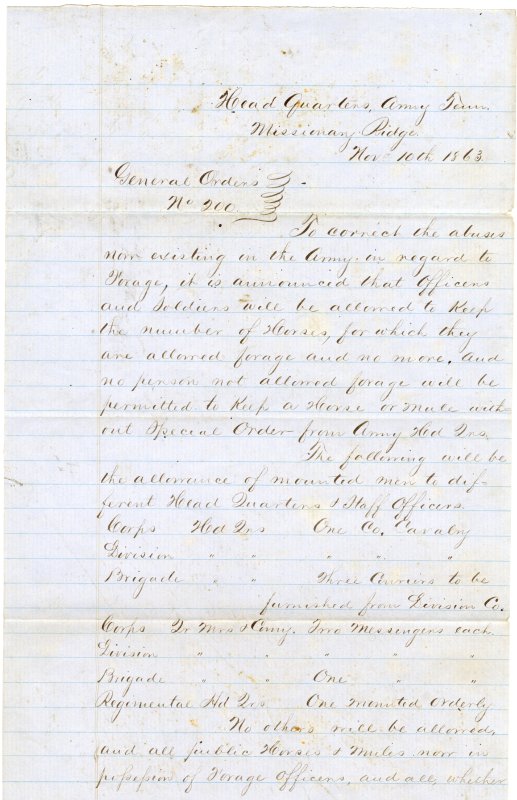 Head Quarters, Army Tenn.
Missionary Ridge
Nov. 10th 1863
General Orders
No 200.
To correct the abuses
now existing in the Army in regard to
Forage, it is announced that Officers
and Soldiers will be allowed to Keep
the number of Horses, for which they
are allowed forage and no more, And
no person not allowed forage will be
permitted to Keep a Horse or Mule with-
out Special Order from Army Hd Qrs.
The following will be
the allowance of mounted men to dif-
ferent Head Quarters & Staff Officers.
Corps Hd Qrs One Co. Cavalry
Division " " " " "
Brigade " " Three Couriers to be
furnished from Division Co.
Corps Qr Mrs & Comy. Two Messengers each
Division " " " "
Brigade " " One " "
Regimental Hd Qrs One mounted Orderly
No others will be allowed,
and all public Horses & Mules now in
possession of Forage Officers, and all, whether